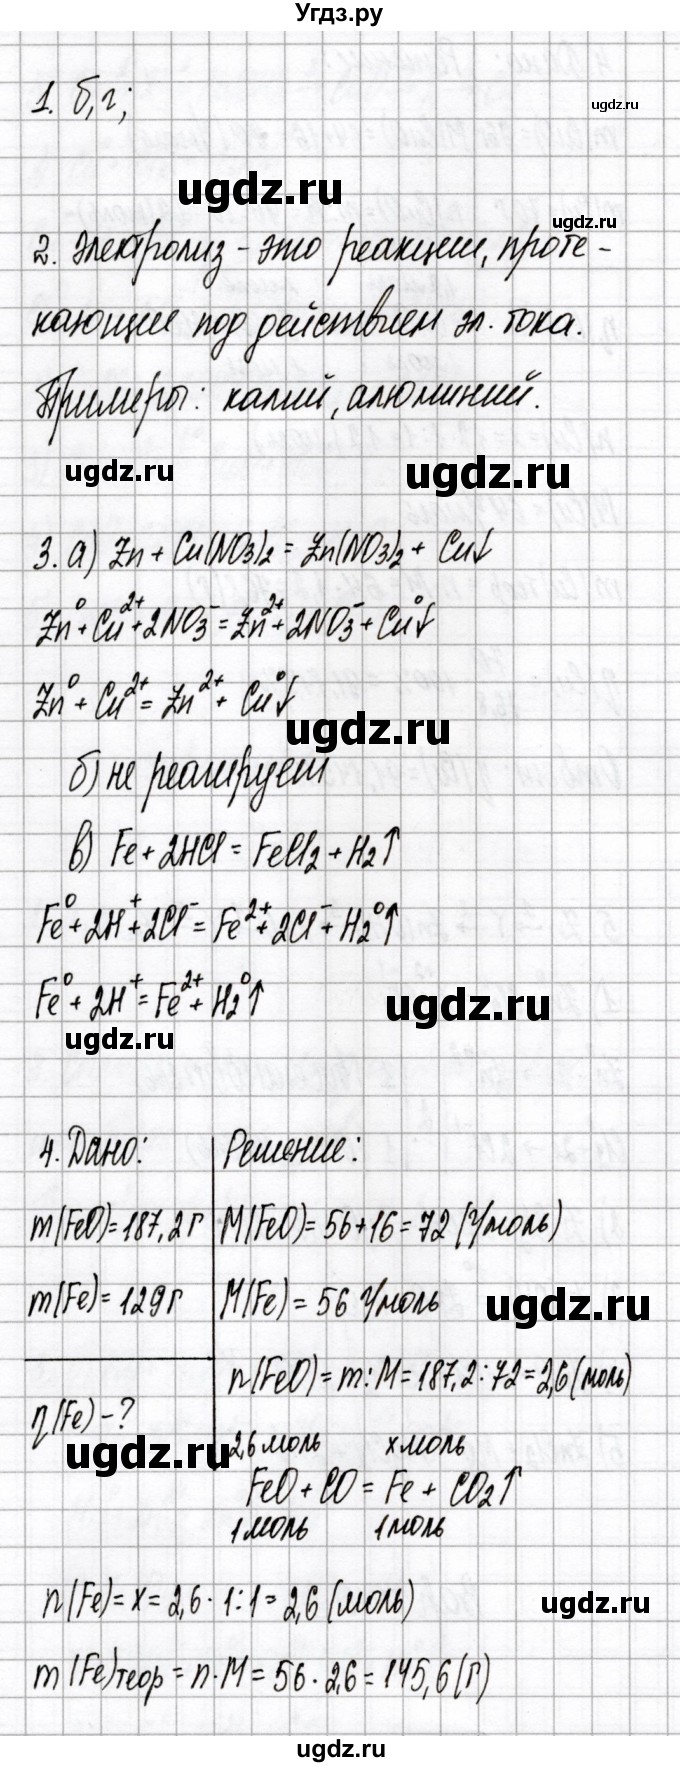 Угдз.ру
1. б, г;
ugdz.ru
ugdz.ru
ugdz.ru
2. Электролиз - это реакции, проте-
кающие под действием эл. тока.
Примеры: калий, алюминий.
ugdz.ru
ugdz.ru
3. а) Zn + Cu(NO3)2 = Zn(NO3)2 + Cu↓
Zn⁰ + Cu²⁺ + 2NO3⁻ = Zn²⁺ + 2NO3⁻ + Cu⁰↓
Zn⁰ + Cu²⁺ = Zn²⁺ + Cu⁰↓
ugdz.ru
б) не реагирует
в) Fe + 2HCl = FeCl2 + H2↑
Fe⁰ + 2H⁺ + 2Cl⁻ = Fe²⁺ + 2Cl⁻ + H2⁰↑
Fe⁰ + 2H⁺ = Fe²⁺ + H2⁰↑
ugdz.ru
ugdz.ru
4. Дано:
m(FeO) = 187,2 г
m(Fe) = 129 г
η(Fe) - ?
Решение:
M(FeO) = 56 + 16 = 72 (г/моль)
M(Fe) = 56 г/моль
ugdz.ru
n(FeO) = m : M = 187,2 : 72 = 2,6 (моль)
ugdz.ru
2,6 моль x моль
FeO + CO = Fe + CO2↑
1 моль 1 моль
n(Fe) = x = 2,6 · 1 : 1 = 2,6 (моль)
ugdz.ru
m(Fe)теор = n · M = 56 · 2,6 = 145,6 (г)
ugdz.ru